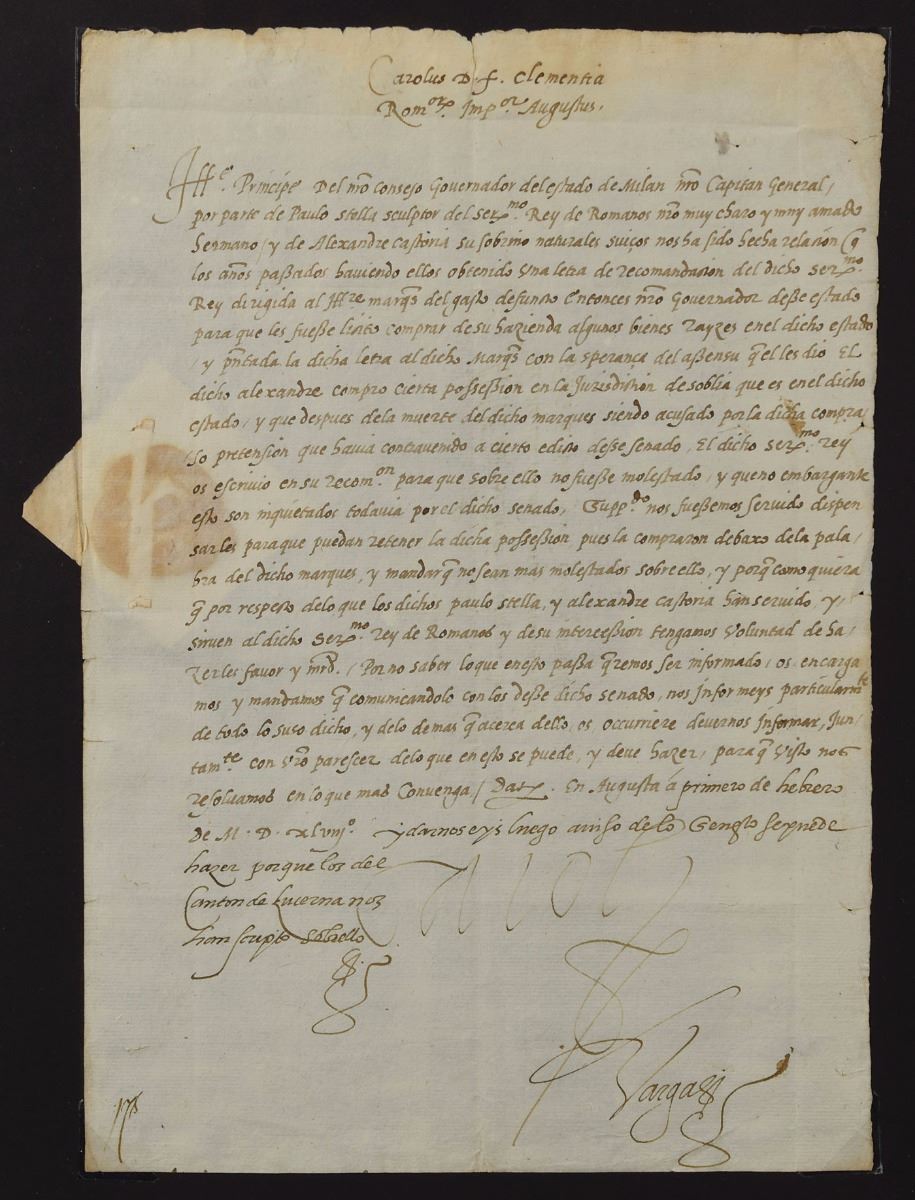 Carolus D. f. Clementia
Rom.orx Imp.or Augustus.
Ill.e Principe Del nro Consejo Governador del estado de Milan nro Capitan General,
por parte de Paulo stella sculptor del Ser.mo Rey de Romanos nro muy charo y muy amado
hermano / y de Alexandre Castoria su sobrino naturales suicos nos ha sido hecha relacion q
los años passados haviendo ellos obtenido Una letra de recomandacion del dicho Ser.mo
Rey dirigida al Ill.re marq͂s del gasto defuncto Entonces nro Governador desse estado
para que les fuesse licito comprar de su hazienda algunos bienes rayzes en el dicho estado
/ y pñtada la dicha letra al dicho Marq͂s con la sperança del assensu q̃ el les dio El
dicho alexandre compro cierta possession en la Jurisdiction de soblia que es en el dicho
estado / y que despues dela muerte del dicho marques siendo acusado por la dicha compra /
so pretension que havia contravenido a cierto edicto desse senado, El dicho ser.mo rey
os escrivio en su recom.on para que sobre ello no fuesse molestado, y que no embargante
esto son inquietados todavia por el dicho senado, Supp.do nos fuessemos servido dispen
sarles para que puedan retener la dicha possession pues la compraron debaxo dela pala /
bra del dicho marques, y mandar q̃ no sean mas molestados sobre ello, y porq̃ como quiera
q̃ por respecto delo que los dichos paulo stella, y alexandre castoria han servido y
sirven al dicho Ser.mo rey de Romanos y de su intercession tengamos Voluntad de ha /
zerles favor y mrd. / Por no saber lo que en esto passa q̃remos ser informado / os encarga
mos y mandamos q̃ comunicandolo con los desse dicho senado, nos informeys particularm.te
de todo lo suso dicho, y delo demas q̃ acerca dello, os occurriere devernos informar, Jun /
tam.te con vro parescer delo que en esto se puede, y deve hazer, para q̃ Visto nos
resolvamos en lo que mas Convenga / Dat. En Augusta á primero de hebrero
De M. D. xlviij.o y darnos eys luego aviso de lo q̃ en esto se puede
hazer porque los del
Canton de Lucerna nos
han scripto sobrello
Vargas
178